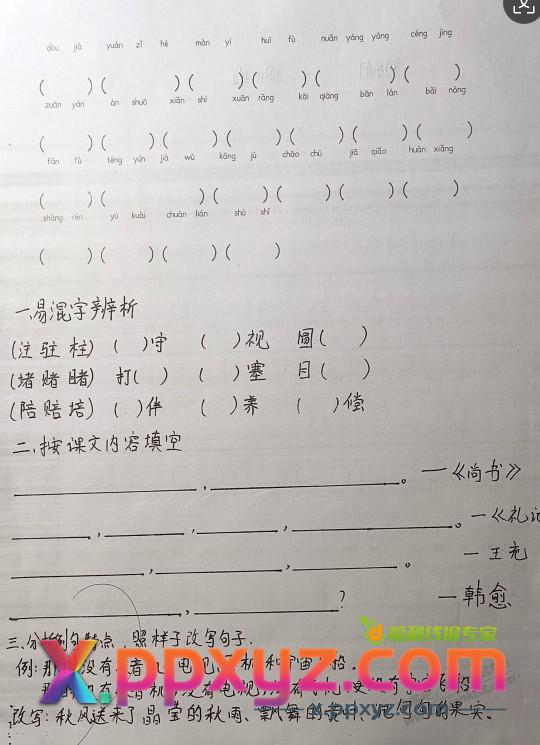 dòu jiǎ yuán zǐ hé màn yì huī fù nuǎn yáng yáng céng jīng
( ) ( ) ( ) ( ) ( ) ( )
zuān yán àn shuō xiǎn shì xuān rǎng kāi qiāng bān lán bǎi nòng
( ) ( ) ( ) ( ) ( ) ( ) ( )
fǎn fù téng yún jià wù kǒng jù chāo chū jiā qiáo huàn xiǎng
( ) ( ) ( ) ( ) ( ) ( )
shāng rén yú kuài chuàn lián shū shì
( ) ( ) ( ) ( )
一、易混字辨析
(注 驻 柱) ( )守 ( )视 圆( )
(堵 赌 睹) 打( ) ( )塞 目( )
(陪 赔 培) ( )伴 ( )养 ( )偿
二、按课文内容填空
，。 —《尚书》
，，，。 —《礼记
，，。 —王充
，？ —韩愈
三、分析例句特点，照样子改写句子.
福利线报专家
例:那 没有 电视 机和宇宙
x.ppxyz.com
改写:秋风送来了晶莹的秋雨、飘舞的 的果实。
x.ppxyz.com